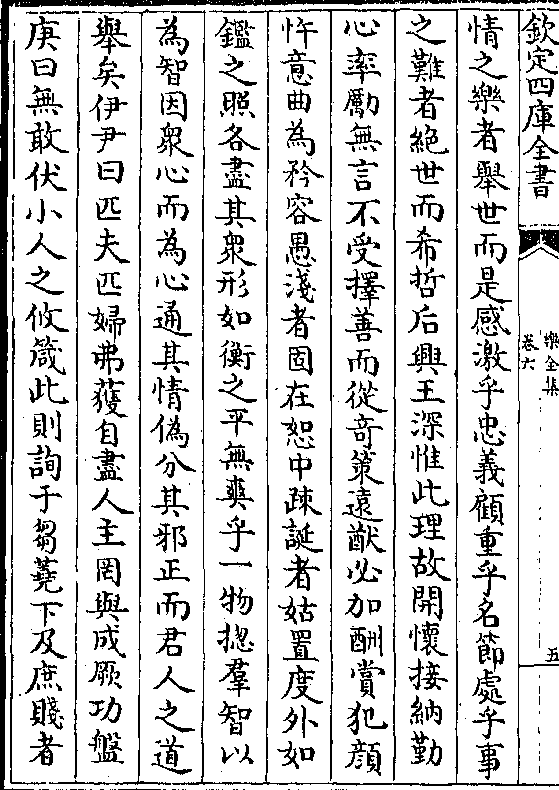 欽定四庫全書
樂全集
卷六
五
情之樂者舉世而是感激乎忠義顧重乎名節處乎事
之難者絶世而希哲后興王深惟此理故開懷接納勤
心率勵無言不受擇善而從竒策遠猷必加酬賞犯顔
忤意曲為矜容愚淺者固在恕中疎誕者姑置度外如
鑑之照各盡其衆形如衡之平無爽乎一物揔羣智以
為智因衆心而為心通其情偽分其邪正而君人之道
舉矣伊尹曰匹夫匹婦弗獲自盡人主罔與成厥功盤
庚曰無敢伏小人之攸箴此則詢于芻蕘下及庶賤者